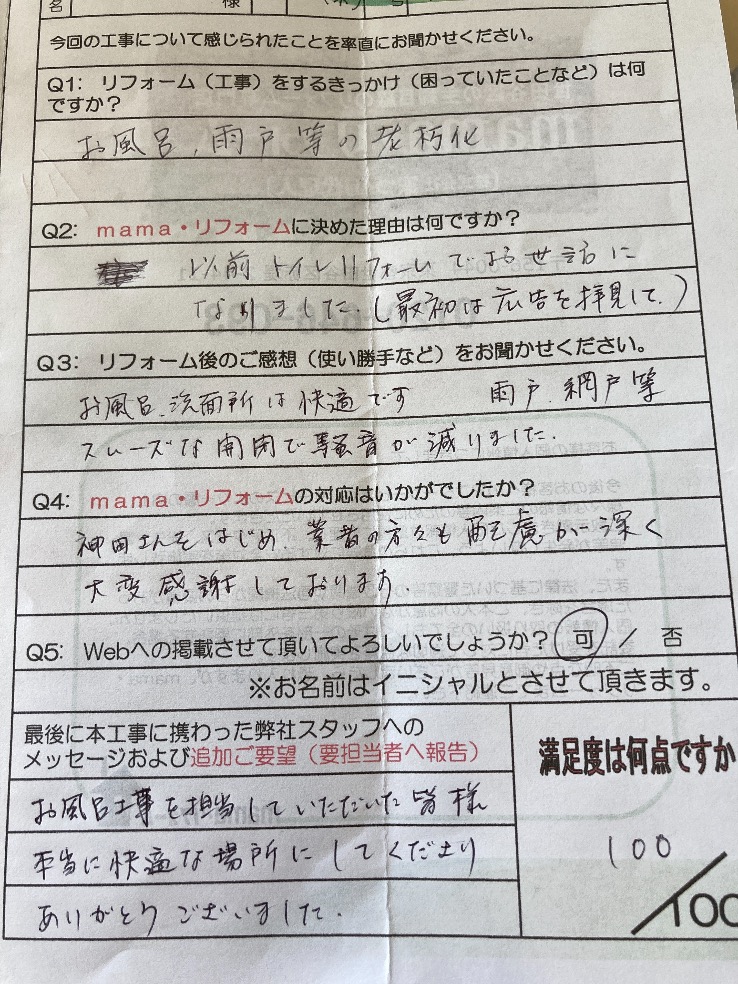 名 様
今回の工事について感じられたことを率直にお聞かせください。
Q1: リフォーム（工事）をするきっかけ（困っていたことなど）は何
ですか？
お風呂、雨戸等の老朽化
Q2: mama・リフォームに決めた理由は何ですか？
以前トイレリフォームでお世話に
なりました。（最初は広告を拝見して。）
Q3: リフォーム後のご感想（使い勝手など）をお聞かせください。
お風呂、洗面所は快適です 雨戸、網戸等
スムーズな開閉で騒音が減りました。
Q4: mama・リフォームの対応はいかがでしたか？
神田さんをはじめ、業者の方々も配慮が深く
大変感謝しております
Q5: Webへの掲載させて頂いてよろしいでしょうか？ 可 ／ 否
※お名前はイニシャルとさせて頂きます。
最後に本工事に携わった弊社スタッフへの
メッセージおよび追加ご要望（要担当者へ報告）
お風呂工事を担当していただいた皆様
本当に快適な場所にしてくださり
ありがとうございました。
満足度は何点ですか
100
／100